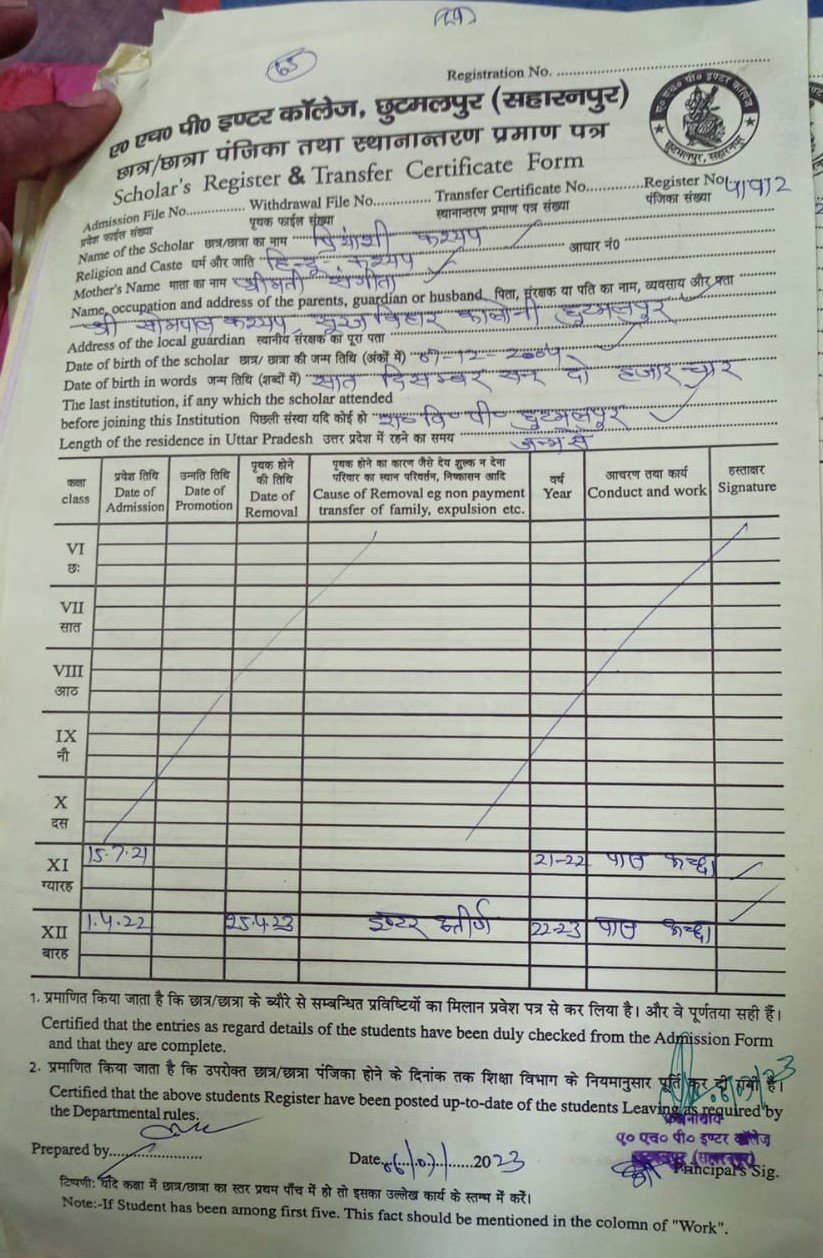 65
Registration No. ..................
ए० एच० पी० इण्टर कॉलेज, छुटमलपुर (सहारनपुर)
ए० एच० पी० इण्टर कालेज
छुटमलपुर, सहारनपुर
छात्र/छात्रा पंजिका तथा स्थानान्तरण प्रमाण पत्र
Scholar's Register & Transfer Certificate Form
Admission File No............... Withdrawal File No............... Transfer Certificate No............... Register No
प्रवेश फाईल संख्या पृथक फाईल संख्या स्थानान्तरण प्रमाण पत्र संख्या पंजिका संख्या
Name of the Scholar छात्र/छात्रा का नाम प्रियांशी कश्यप आधार नं०
Religion and Caste धर्म और जाति हिन्दू - कश्यप
Mother's Name माता का नाम श्रीमती संगीता
Name, occupation and address of the parents, guardian or husband पिता, संरक्षक या पति का नाम, व्यवसाय और पता
श्री सोमपाल कश्यप, सूरज विहार कालोनी छुटमलपुर
Address of the local guardian स्थानीय संरक्षक का पूरा पता
Date of birth of the scholar छात्र/ छात्रा की जन्म तिथि (अंकों में) 07-12-2004
Date of birth in words जन्म तिथि (शब्दों में) सात दिसम्बर सन दो हजार चार
The last institution, if any which the scholar attended
before joining this Institution पिछली संस्था यदि कोई हो छुटमलपुर
Length of the residence in Uttar Pradesh उत्तर प्रदेश में रहने का समय जन्म से
कक्षा class प्रवेश तिथि Date of Admission उन्नति तिथि Date of Promotion पृथक होने की तिथि Date of Removal पृथक होने का कारण जैसे देय शुल्क न देना परिवार का स्थान परिवर्तन, निष्कासन आदि Cause of Removal eg non payment transfer of family, expulsion etc. वर्ष Year आचरण तथा कार्य Conduct and work हस्ताक्षर Signature
VI
छः
VII
सात
VIII
आठ
IX
नौ
X
दस
XI 15.7.21 21-22 पास अच्छा
ग्यारह
XII 1.4.22 25.4.23 इण्टर उत्तीर्ण 22-23 पास अच्छा
बारह
1. प्रमाणित किया जाता है कि छात्र/छात्रा के ब्यौरे से सम्बन्धित प्रविष्टियों का मिलान प्रवेश पत्र से कर लिया है। और वे पूर्णतया सही हैं।
Certified that the entries as regard details of the students have been duly checked from the Admission Form
and that they are complete.
2. प्रमाणित किया जाता है कि उपरोक्त छात्र/छात्रा पंजिका होने के दिनांक तक शिक्षा विभाग के नियमानुसार पूर्ति कर दी गयी है।
Certified that the above students Register have been posted up-to-date of the students Leaving as required by
the Departmental rules.
प्रधानाचार्य
ए० एच० पी० इण्टर कॉलेज
छुटमलपुर (सहारनपुर)
Prepared by..................... Date 06/07/2023 Principal's Sig.
टिप्पणी: यदि कक्षा में छात्र/छात्रा का स्तर प्रथम पाँच में हो तो इसका उल्लेख कार्य के स्तम्भ में करें।
Note:-If Student has been among first five. This fact should be mentioned in the colomn of "Work".